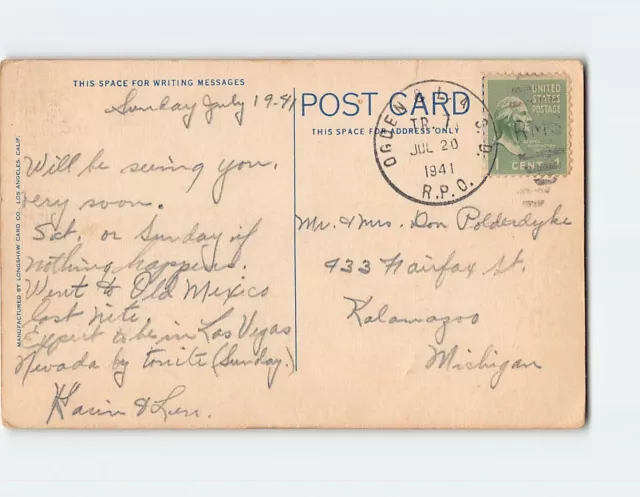 THIS SPACE FOR WRITING MESSAGES
Sunday July 19-41
Will be seeing you.
very soon.
Sat. or Sunday if
nothing happens.
Went to Old Mexico
last nite.
Expect to be in Las Vegas
Nevada by tonite (Sunday.)
& Len.
MANUFACTURED BY LONGSHAW CARD CO., LOS ANGELES, CALIF.
POST CARD
THIS SPACE FOR ADDRESS ONLY
OGDEN & LA
TR. 1
JUL 20
1941
R.P.O.
UNITED
STATES
POSTAGE
RMS
CENT
Mr. & Mrs. Don Polderdyke
933 Fairfax St.
Kalamazoo
Michigan